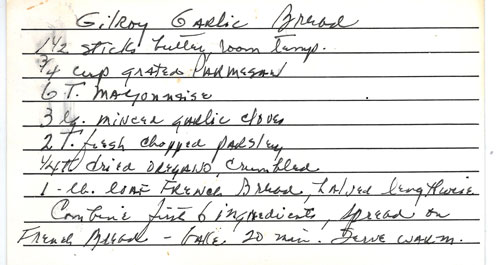 Gilroy Garlic Bread
1 1/2 sticks butter, room temp.
3/4 cup grated Parmesan
6 T. mayonnaise
3 lg. minced garlic cloves
2 T. fresh chopped parsley
1/4 t. dried oregano, crumbled
1-lb. loaf French Bread, halved lengthwise
Combine first 6 ingredients, spread on
French Bread - bake 20 min. Serve warm.